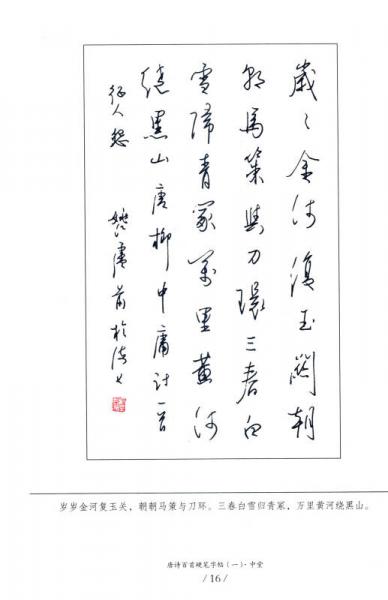 歲々金河復玉關朝
朝馬策與刀環三春白
雪歸青冢萬里黃河
繞黑山唐柳中庸詩一首
征人怨
岁岁金河复玉关，朝朝马策与刀环。三春白雪归青冢，万里黄河绕黑山。
唐诗百首硬笔字帖（一）·中堂
/ 16 /